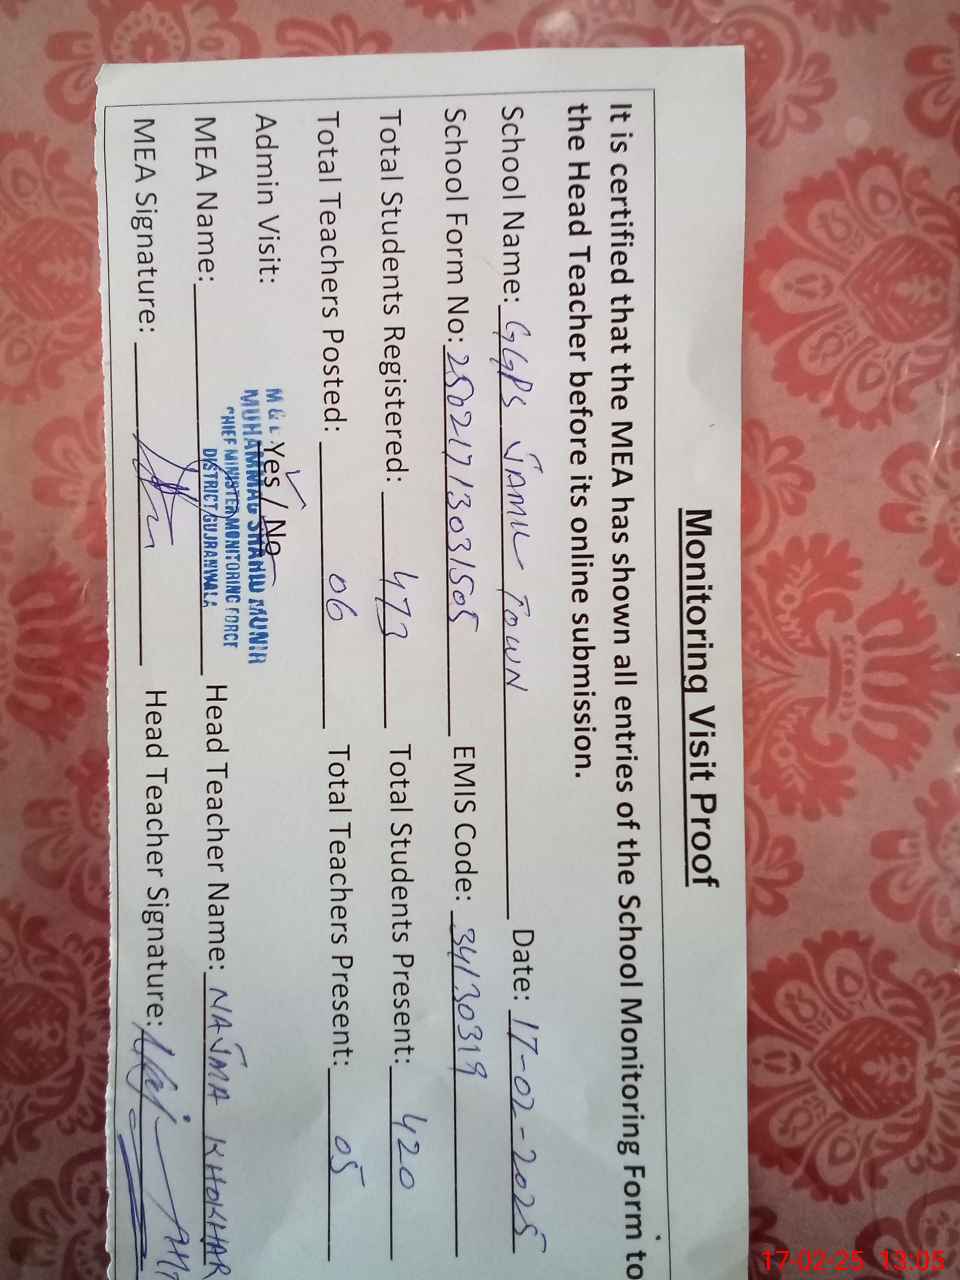 Monitoring Visit Proof
It is certified that the MEA has shown all entries of the School Monitoring Form to
the Head Teacher before its online submission.
School Name: GGPS JAMIL TOWN Date: 17-02-2025
School Form No: 25021713031505 EMIS Code: 34130319
Total Students Registered: 473 Total Students Present: 420
Total Teachers Posted: 06 Total Teachers Present: 05
Admin Visit: Yes / No
MUHAMMAD SHAHID MUNIR
CHIEF MINISTER MONITORING FORCE
DISTRICT GUJRANWALA
MEA Name: Head Teacher Name: NAJMA KHOKHAR
MEA Signature: Head Teacher Signature:
17-02-25 13:05